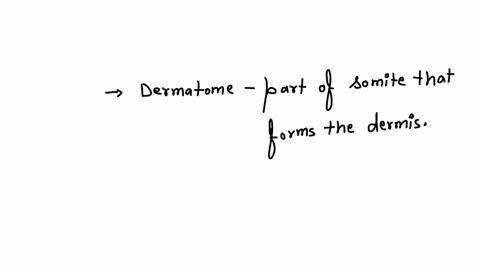 → Dermatome - part of somite that
forms the dermis.